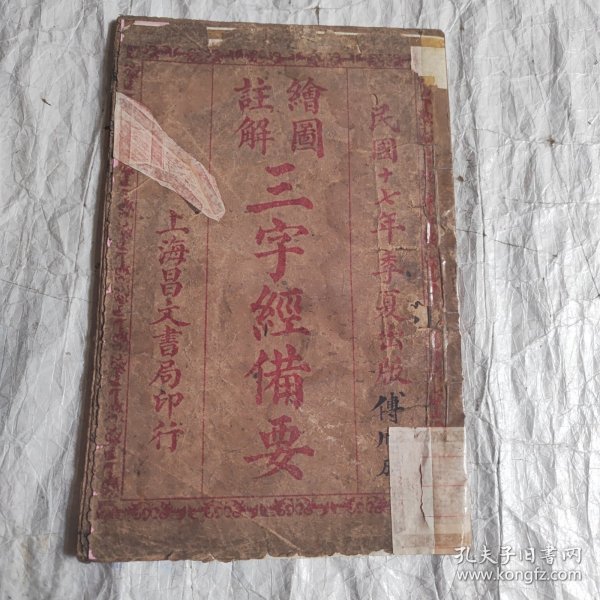 民國十七年季夏出版
傅
繪圖
註解
三字經備要
上海昌文書局印行
孔夫子旧書网
www.kongfz.com